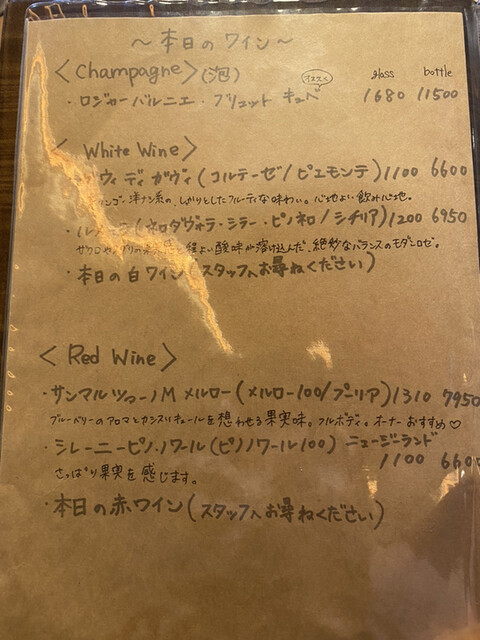 〜本日のワイン〜
<Champagne>(泡) glass bottle
オススメ
・ロジャーバルニエ・ブリュット キュベ 1680 11500
<White Wine>
ガヴィ ディ ガヴィ(コルテーゼ/ピエモンテ) 1100 6600
リンゴ、洋ナシ系の、しっかりとしたフルーティな味わい。心地よい飲み心地。
・ル (ネロダヴォラ・シラー・ピノネロ/シチリア) 1200 6950
ザクロや 程よい酸味が溶け込んだ、絶妙なバランスのモダンロゼ。
・本日の白ワイン(スタッフへお尋ねください)
<Red Wine>
・サンマルツァーノM メルロー(メルロー100/プーリア) 1310 7950
ブルーベリーのアロマとカシスリキュールを想わせる果実味。フルボディ。オーナーおすすめ♡
・シレーニーピノ・ノワール(ピノノワール100) ニュージーランド
1100 6600
さっぱり果実を感じます。
・本日の赤ワイン(スタッフへお尋ねください)